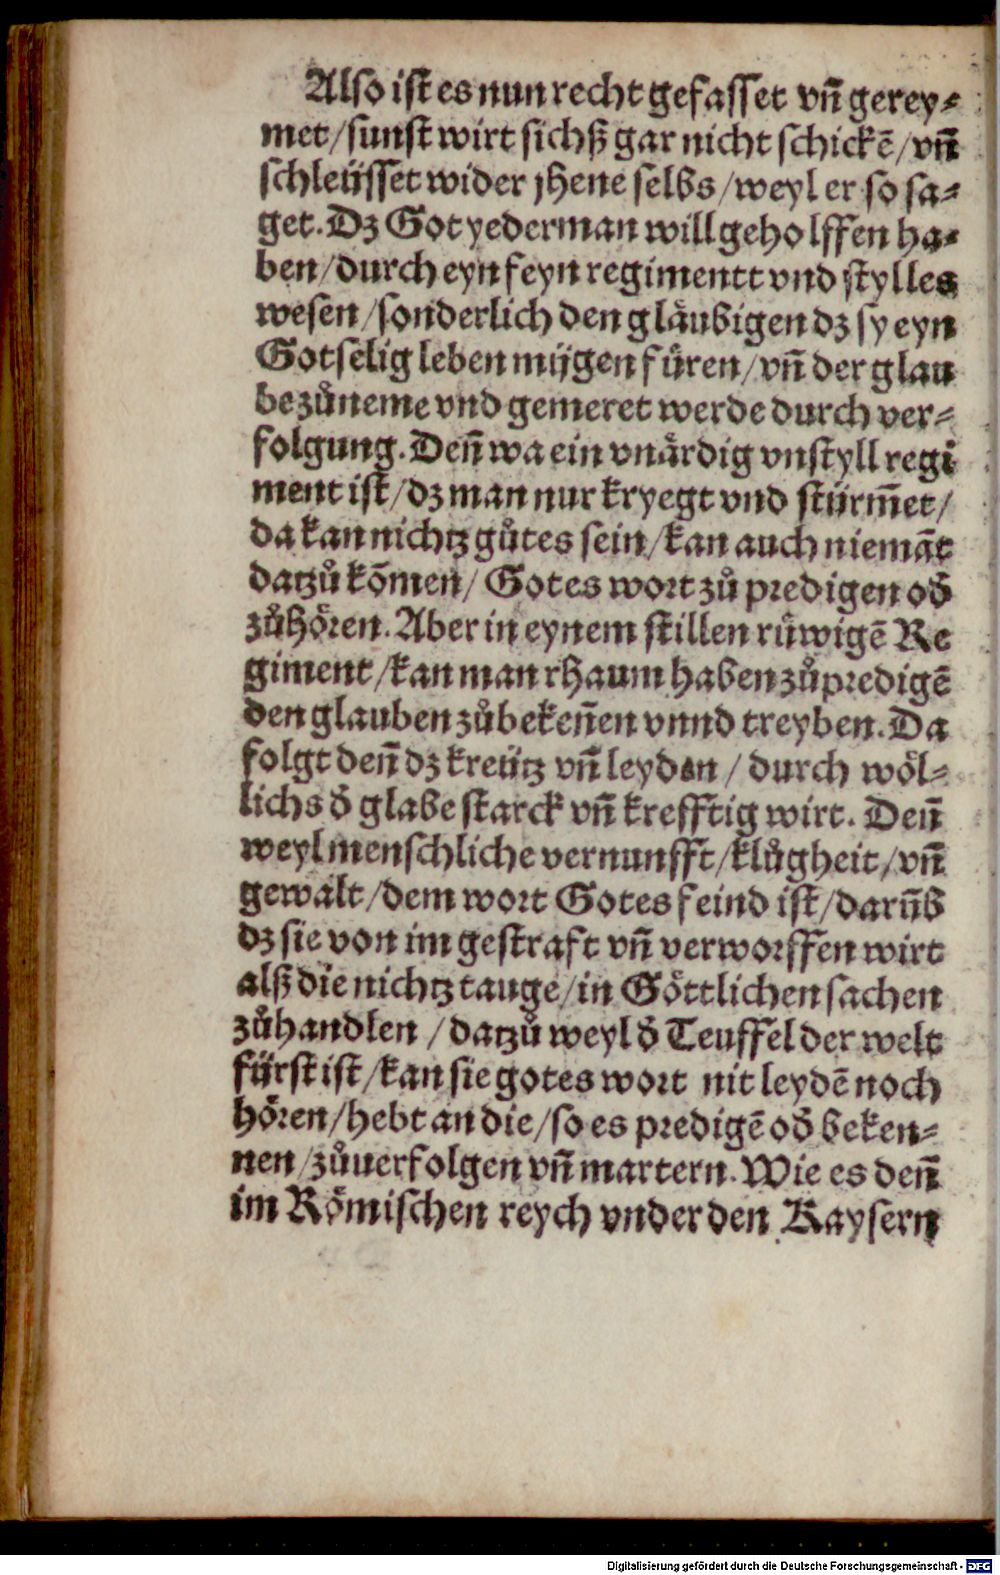 Also ist es nun recht gefasset vn̄ gerey⸗
met/sunst wirt sichß gar nicht schickē/vn̄
schleüsset wider jhene selbs/weyl er so sa⸗
get. Dz Got yederman will geholffen ha⸗
ben/durch eyn feyn regimentt vnd stylles
wesen/sonderlich den gläubigen dz sy eyn
Gotselig leben mügen füren/vn̄ der glau
be zůneme vnd gemeret werde durch ver⸗
folgung. Den̄ wa ein vnärdig vnstyll regi
ment ist/dz man nur kryegt vnd stürm̄et/
da kan nichtz gůtes sein/kan auch niemāt
datzů kōmen/ Gotes wort zů predigen od̄
zůhören. Aber in eynem stillen rüwigē Re
giment/kan man rhaum haben zůpredigē
den glauben zůbeken̄en vnnd treyben. Da
folgt den̄ dz kreütz vn̄ leyden / durch wöl⸗
lichs d̄ glabe starck vn̄ krefftig wirt. Den̄
weyl menschliche vernunfft/klůgheit/vn̄
gewalt/dem wort Gotes feind ist/darūb
dz sie von im gestraft vn̄ verworffen wirt
alß die nichtz tauge/in Göttlichen sachen
zůhandlen /datzů weyl d̄ Teuffel der welt
fürst ist/kan sie gotes wort nit leydē noch
hören/hebt an die/so es predigē od̄ beken⸗
nen/zůuerfolgen vn̄ martern. Wie es den̄
im Römischen reych vnder den Kaysern
Digitalisierung gefördert durch die Deutsche Forschungsgemeinschaft - DFG